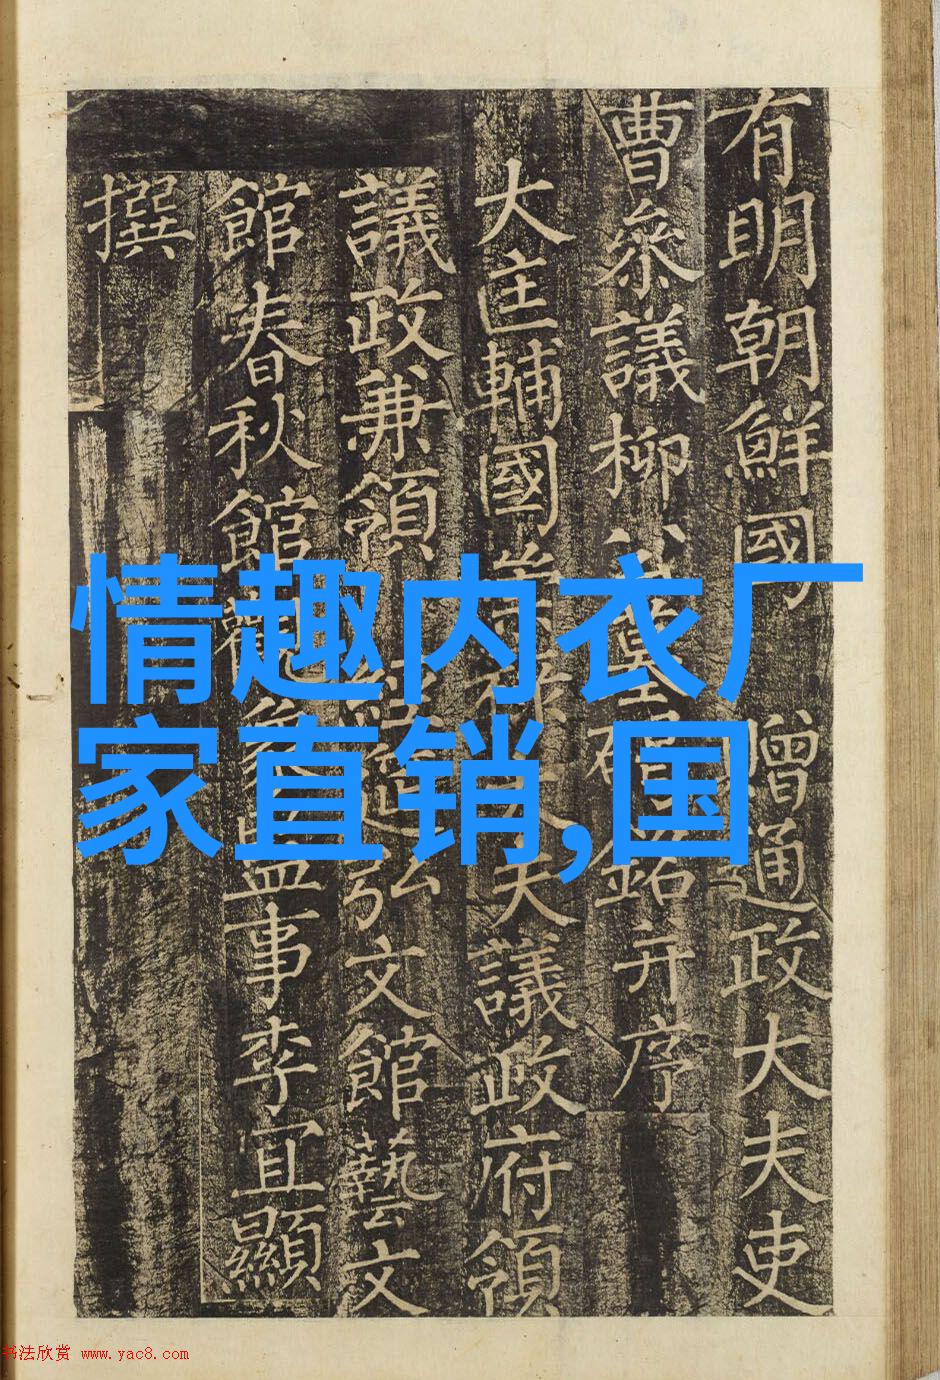 有明朝鮮國 贈通政大夫吏
曹叅議柳公墓碣銘并序
大匡輔國崇祿大夫議政府領
議政兼領經筵弘文館藝文
館春秋館觀象監事李宜顯
撰
情趣内衣厂
家直销,国
书法欣赏 www.yac8.com